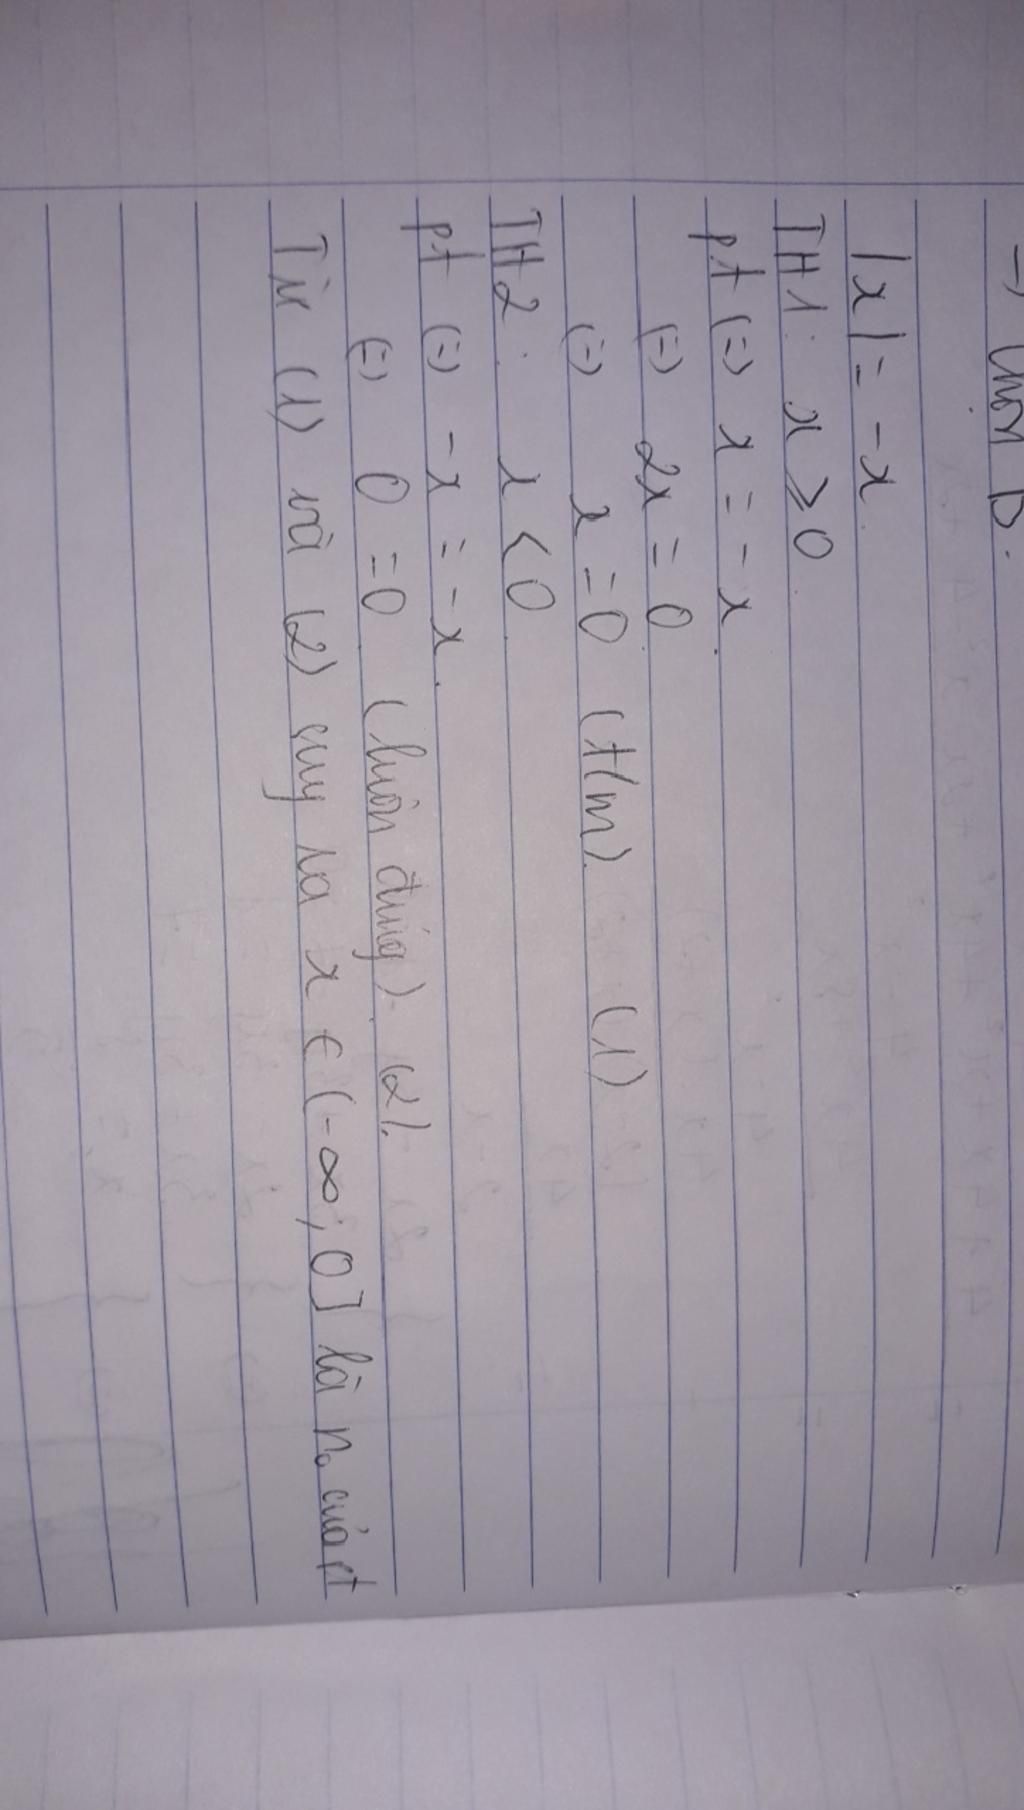 → Chọn D.
|x| = -x
TH1: x ≥ 0
pt (=) x = -x.
(=) 2x = 0
(=) x = 0 (t/m) (1)
TH2: x < 0
pt (=) -x = -x.
(=) 0 = 0 (luôn đúng). (2).
Từ (1) và (2) suy ra x ∈ (-∞; 0] là no của pt